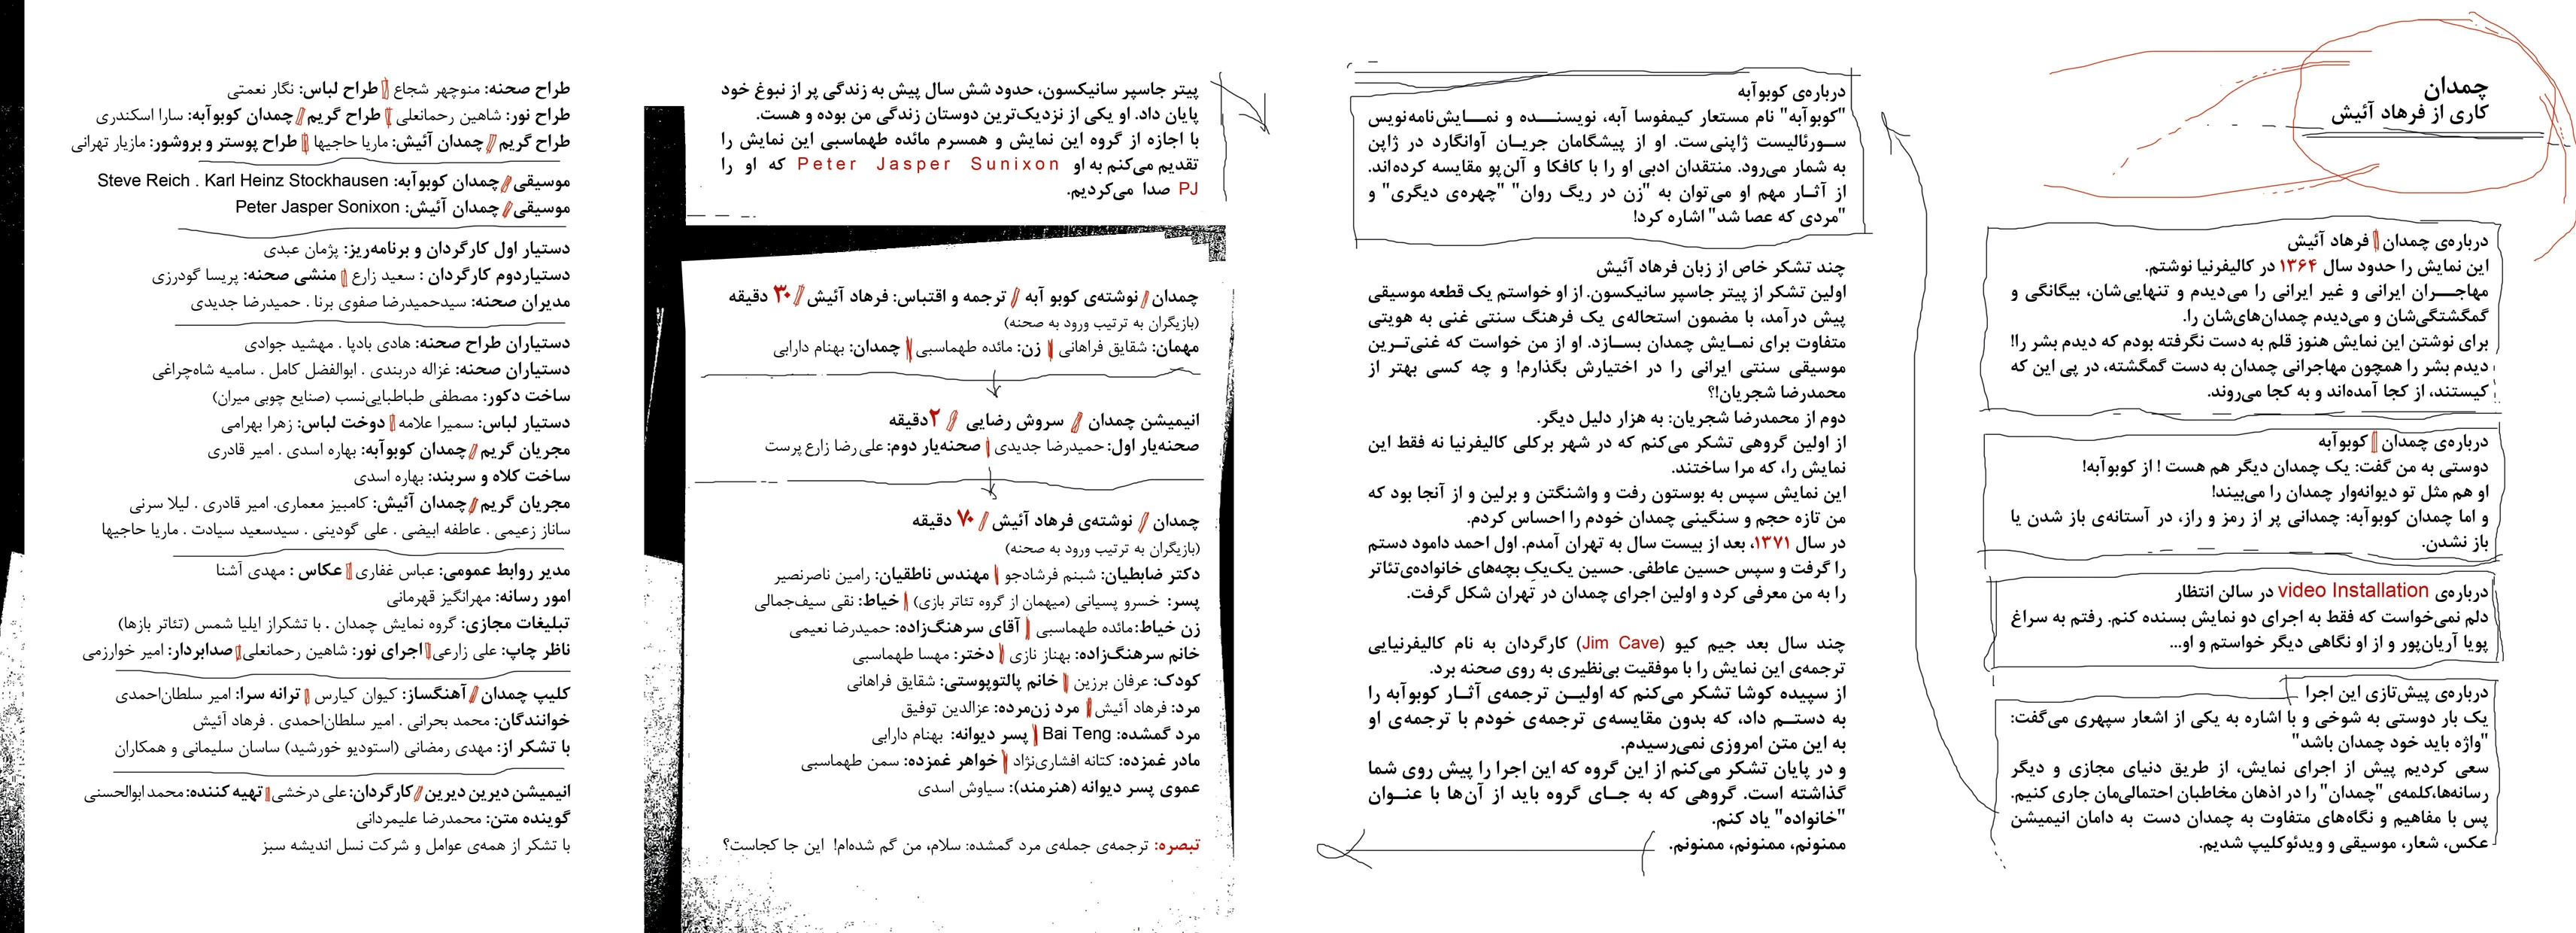 چمدان
کاری از فرهاد آئیش
درباره‌ی چمدان // فرهاد آئیش
این نمایش را حدود سال ۱۳۶۴ در کالیفرنیا نوشتم.
مهاجـــران ایرانی و غیر ایرانی را می‌دیدم و تنهایی‌شان، بیگانگی و
گمگشتگی‌شان و می‌دیدم چمدان‌های‌شان را.
برای نوشتن این نمایش هنوز قلم به دست نگرفته بودم که دیدم بشر را!
دیدم بشر را همچون مهاجرانی چمدان به دست گمگشته، در پی این که
کیستند، از کجا آمده‌اند و به کجا می‌روند.
درباره‌ی چمدان // کوبوآبه
دوستی به من گفت: یک چمدان دیگر هم هست ! از کوبوآبه!
او هم مثل تو دیوانه‌وار چمدان را می‌بیند!
و اما چمدان کوبوآبه: چمدانی پر از رمز و راز، در آستانه‌ی باز شدن یا
باز نشدن.
درباره‌ی video Installation در سالن انتظار
دلم نمی‌خواست که فقط به اجرای دو نمایش بسنده کنم. رفتم به سراغ
پویا آریان‌پور و از او نگاهی دیگر خواستم و او...
درباره‌ی پیش‌تازی این اجرا
یک بار دوستی به شوخی و با اشاره به یکی از اشعار سپهری می‌گفت:
"واژه باید خود چمدان باشد"
سعی کردیم پیش از اجرای نمایش، از طریق دنیای مجازی و دیگر
رسانه‌ها،کلمه‌ی "چمدان" را در اذهان مخاطبان احتمالی‌مان جاری کنیم.
پس با مفاهیم و نگاه‌های متفاوت به چمدان دست به دامان انیمیشن
عکس، شعار، موسیقی و ویدئوکلیپ شدیم.
درباره‌ی کوبوآبه
"کوبوآبه" نام مستعار کیمفوسا آبه، نویسنـــده و نمــایش‌نامه‌نویس
سـورئالیست ژاپنی‌ست. او از پیشگامان جریـان آوانگارد در ژاپن
به شمار می‌رود. منتقدان ادبی او را با کافکا و آلن‌پو مقایسه کرده‌اند.
از آثـار مهم او می‌توان به "زن در ریگ روان" "چهره‌ی دیگری" و
"مردی که عصا شد" اشاره کرد!
چند تشکر خاص از زبان فرهاد آئیش
اولین تشکر از پیتر جاسپر سانیکسون. از او خواستم یک قطعه موسیقی
پیش درآمد، با مضمون استحاله‌ی یک فرهنگ سنتی غنی به هویتی
متفاوت برای نمـایش چمدان بسـازد. او از من خواست که غنی‌تـرین
موسیقی سنتی ایرانی را در اختیارش بگذارم! و چه کسی بهتر از
محمدرضا شجریان!؟
دوم از محمدرضا شجریان: به هزار دلیل دیگر.
از اولین گروهی تشکر می‌کنم که در شهر برکلی کالیفرنیا نه فقط این
نمایش را، که مرا ساختند.
این نمایش سپس به بوستون رفت و واشنگتن و برلین و از آنجا بود که
من تازه حجم و سنگینی چمدان خودم را احساس کردم.
در سال ۱۳۷۱، بعد از بیست سال به تهران آمدم. اول احمد دامود دستم
را گرفت و سپس حسین عاطفی. حسین یک‌یکِ بچه‌های خانواده‌ی‌تئاتر
را به من معرفی کرد و اولین اجرای چمدان در تهران شکل گرفت.
چند سال بعد جیم کیو (Jim Cave) کارگردان به نام کالیفرنیایی
ترجمه‌ی این نمایش را با موفقیت بی‌نظیری به روی صحنه برد.
از سپیده کوشا تشکر می‌کنم که اولیـن ترجمه‌ی آثـار کوبوآبه را
به دستـم داد، که بدون مقایسه‌ی ترجمه‌ی خودم با ترجمه‌ی او
به این متن امروزی نمی‌رسیدم.
و در پایان تشکر می‌کنم از این گروه که این اجرا را پیش روی شما
گذاشته است. گروهی که به جـای گروه باید از آن‌ها با عنـوان
"خانواده" یاد کنم.
ممنونم، ممنونم، ممنونم.
پیتر جاسپر سانیکسون، حدود شش سال پیش به زندگی پر از نبوغ خود
پایان داد. او یکی از نزدیک‌ترین دوستان زندگی من بوده و هست.
با اجازه از گروه این نمایش و همسرم مائده طهماسبی این نمایش را
تقدیم می‌کنم به او Peter Jasper Sunixon که او را
PJ صدا می‌کردیم.
چمدان // نوشته‌ی کوبو آبه // ترجمه و اقتباس: فرهاد آئیش // ۳۰ دقیقه
(بازیگران به ترتیب ورود به صحنه)
مهمان: شقایق فراهانی // زن: مائده طهماسبی // چمدان: بهنام دارابی
انیمیشن چمدان // سروش رضایی // ۲دقیقه
صحنه‌یار اول: حمیدرضا جدیدی // صحنه‌یار دوم: علی‌رضا زارع پرست
چمدان // نوشته‌ی فرهاد آئیش // ۷۰ دقیقه
(بازیگران به ترتیب ورود به صحنه)
دکتر ضابطیان: شبنم فرشادجو // مهندس ناطقیان: رامین ناصرنصیر
پسر: خسرو پسیانی (میهمان از گروه تئاتر بازی) // خیاط: نقی سیف‌جمالی
زن خیاط:مائده طهماسبی // آقای سرهنگ‌زاده: حمیدرضا نعیمی
خانم سرهنگ‌زاده: بهناز نازی // دختر: مهسا طهماسبی
کودک: عرفان برزین // خانم پالتوپوستی: شقایق فراهانی
مرد: فرهاد آئیش // مرد زن‌مرده: عزالدین توفیق
مرد گمشده: Bai Teng // پسر دیوانه: بهنام دارابی
مادر غمزده: کتانه افشاری‌نژاد // خواهر غمزده: سمن طهماسبی
عموی پسر دیوانه (هنرمند): سیاوش اسدی
تبصره: ترجمه‌ی جمله‌ی مرد گمشده: سلام، من گم شده‌ام! این جا کجاست؟
طراح صحنه: منوچهر شجاع // طراح لباس: نگار نعمتی
طراح نور: شاهین رحمانعلی // طراح گریم // چمدان کوبوآبه: سارا اسکندری
طراح گریم // چمدان آئیش: ماریا حاجیها // طراح پوستر و بروشور: مازیار تهرانی
موسیقی // چمدان کوبوآبه: Steve Reich . Karl Heinz Stockhausen
موسیقی // چمدان آئیش: Peter Jasper Sonixon
دستیار اول کارگردان و برنامه‌ریز: پژمان عبدی
دستیاردوم کارگردان : سعید زارع // منشی صحنه: پریسا گودرزی
مدیران صحنه: سیدحمیدرضا صفوی برنا . حمیدرضا جدیدی
دستیاران طراح صحنه: هادی بادپا . مهشید جوادی
دستیاران صحنه: غزاله دربندی . ابوالفضل کامل . سامیه شاه‌چراغی
ساخت دکور: مصطفی طباطبایی‌نسب (صنایع چوبی میران)
دستیار لباس: سمیرا علامه // دوخت لباس: زهرا بهرامی
مجریان گریم // چمدان کوبوآبه: بهاره اسدی . امیر قادری
ساخت کلاه و سربند: بهاره اسدی
مجریان گریم // چمدان آئیش: کامبیز معماری. امیر قادری . لیلا سرنی
ساناز زعیمی . عاطفه ابیضی . علی گودینی . سیدسعید سیادت . ماریا حاجیها
مدیر روابط عمومی: عباس غفاری // عکاس : مهدی آشنا
امور رسانه: مهرانگیز قهرمانی
تبلیغات مجازی: گروه نمایش چمدان . با تشکراز ایلیا شمس (تئاتر بازها)
ناظر چاپ: علی زارعی // اجرای نور: شاهین رحمانعلی // صدابردار: امیر خوارزمی
کلیپ چمدان // آهنگساز: کیوان کیارس // ترانه سرا: امیر سلطان‌احمدی
خوانندگان: محمد بحرانی . امیر سلطان‌احمدی . فرهاد آئیش
با تشکر از: مهدی رمضانی (استودیو خورشید) ساسان سلیمانی و همکاران
انیمیشن دیرین دیرین // کارگردان: علی درخشی // تهیه کننده: محمد ابوالحسنی
گوینده متن: محمدرضا علیمردانی
با تشکر از همه‌ی عوامل و شرکت نسل اندیشه سبز